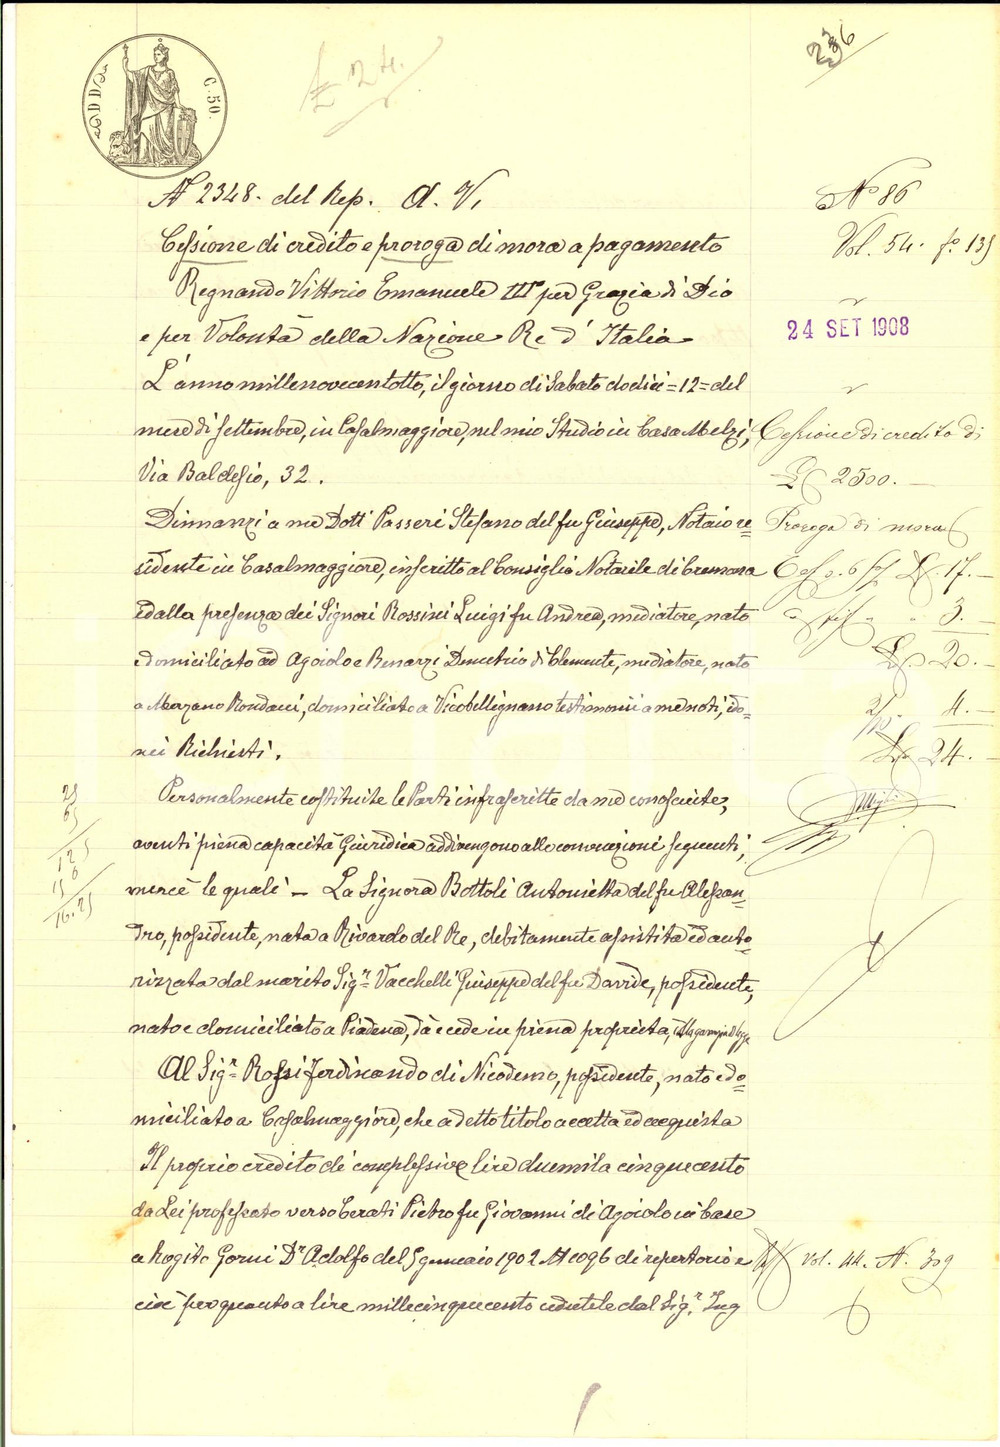 C. 50.
236
N° 2348. del Rep. A. V.
N° 86
Cessione di credito e proroga di mora a pagamento
Vol. 54. f° 135
Regnando Vittorio Emanuele III° per Grazia di Dio
e per Volontà della Nazione Re d'Italia
24 SET 1908
L'anno millenovecentotto, il giorno di Sabato dodici =12= del
mese di settembre, in Casalmaggiore, nel mio Studio in Casa Melzi,
Via Baldesio, 32.
Cessione di credito di
L 2500.—
Dinnanzi a me Dott Passeri Stefano del fu Giuseppe, Notaio re=
sidente in Casalmaggiore, inscritto al Consiglio Notarile di Cremona
ed alla presenza dei Signori Rossini Luigi fu Andrea, mediatore, nato
e domiciliato ad Agoiolo e Benazzi Demetrio di Clemente, mediatore, nato
a Merzano Rondani, domiciliato a Vicobellignano testimonii a me noti, ido=
nei Richiesti.
Proroga di mora
L. 17.—
3.—
L 20.—
2/10 4.—
L 24.—
Personalmente costituite le Parti infrascritte da me conosciute,
aventi piena capacità Giuridica addivengono alle convenzioni seguenti,
mercè le quali — La Signora Bottoli Antonietta del fu Alessan=
dro, possidente, nata a Rivarolo del Re, debitamente assistita ed auto=
rizzata dal marito Sigr Vacchelli Giuseppe del fu Davide, possidente,
nato e domiciliato a Piadena, dà e cede in piena proprietà,
Al Sigr Rossi Ferdinando di Nicodemo, possidente, nato e do=
miciliato a Casalmaggiore, che a detto titolo accetta ed acquista
Il proprio credito di complessive lire duemila cinquecento
da Lei professato verso Cerati Pietro fu Giovanni di Agoiolo in base
a Rogito Gorni Dr Adolfo del 5 gennaio 1902 N 1096 di repertorio e
cioè per quanto a lire millecinquecento cedutele dal Sigr Ing
vol. 44. N. 309